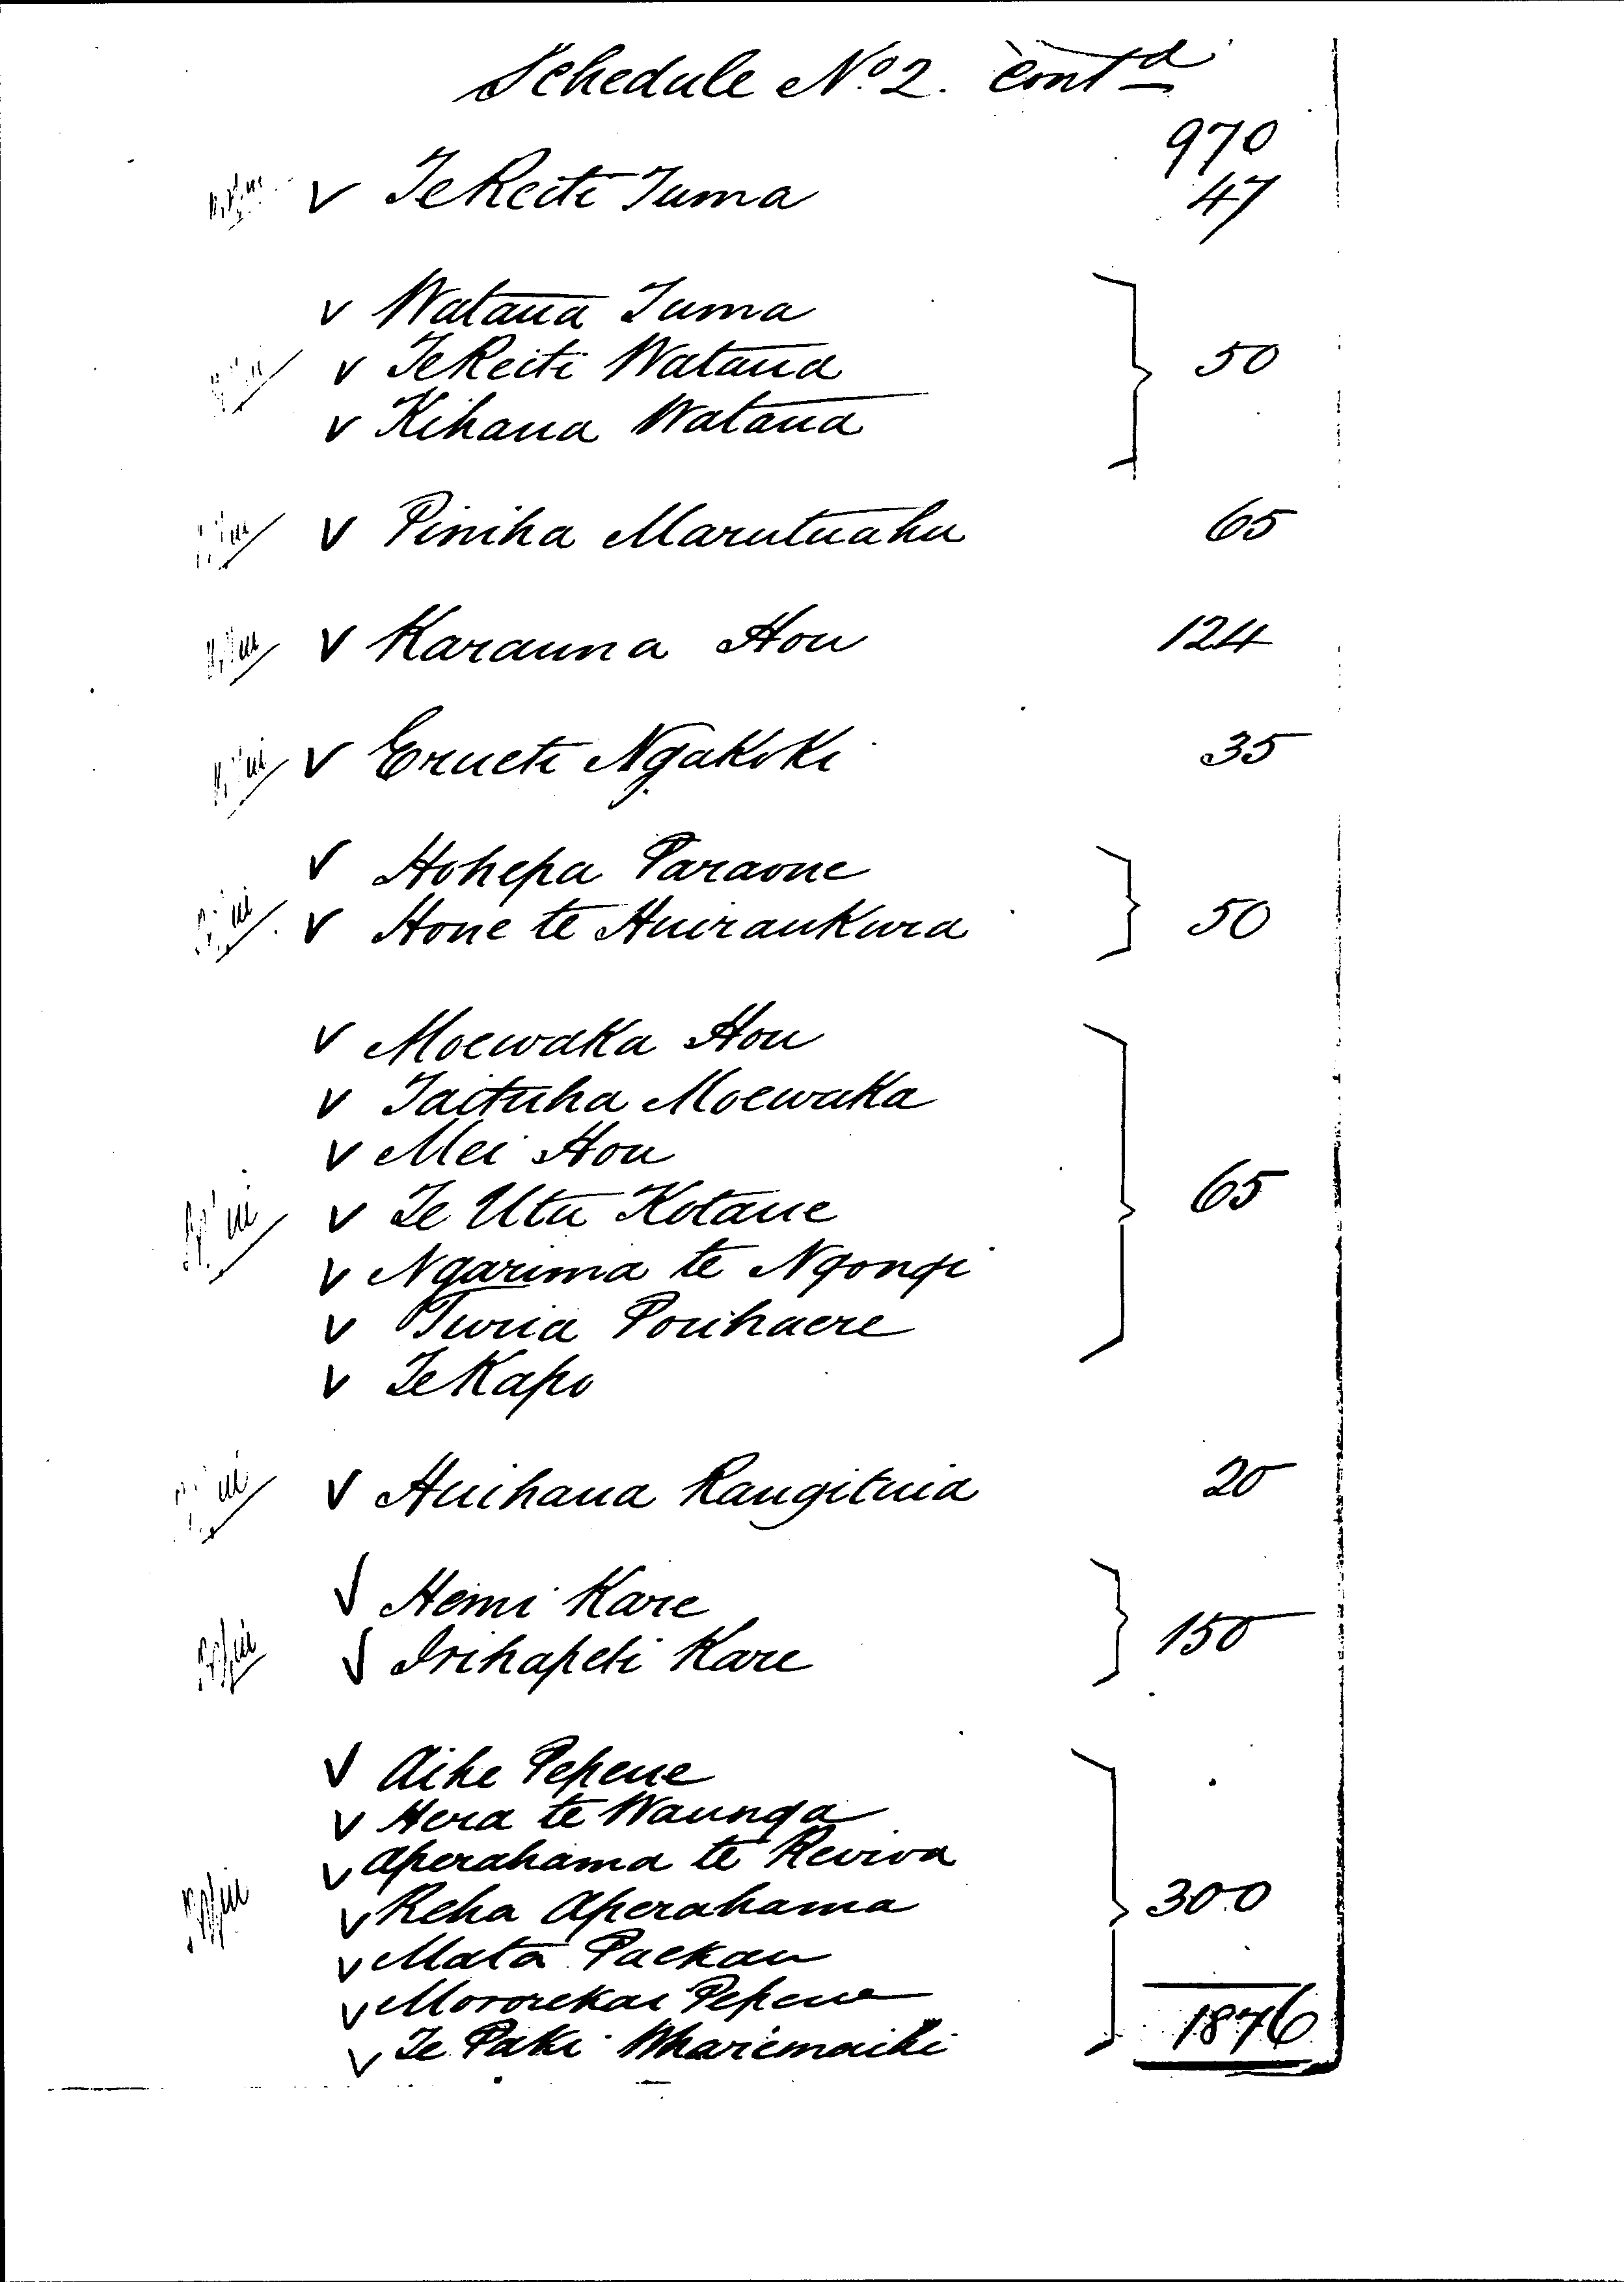 Schedule No. 2. contd
970
v TeReiti Tuma 47
v Wataua Tuma
v TeReiti Wataua 50
v Kihaua Wataua
v Piniha Marutuahu 65
v Karauna Hou 124
v Erueti Ngakoki 35
v Hohepa Paraone
v Hone te Huiraukura 50
v Moewaka Hou
v Taituha Moewaka
v Mei Hou
v Te Utu Kotaue 65
v Ngarima te Ngongi
v Turia Pouhaere
v TeKapo
v Huihana Rangituia 20
v Hemi Kare
v Irihapeti Kare 150
v Aihe Pepene
v Hera te Waunga
v Aperahama te Reviva
v Reha Aperahama 300
v Mata Paekau
v Mororekai Pepene
v Te Paki Wharemaihi 1876